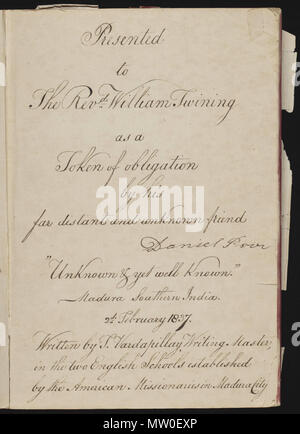 Presented
to
The Revd. William Twining
as a
Token of obligation
by his
far distant and unknown friend
Daniel Poor
"Unknown & yet well Known."
Madura Southern India.
2d. February 1837.
Written by T. Vardapillay Writing Master,
in the two English Schools established
by the American Missionaries in Madura City
alamy
www.alamy.com
MW0EXP